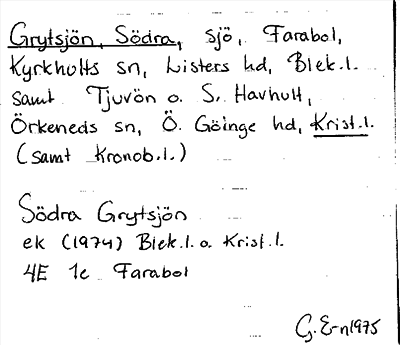 Grytsjön, Södra, sjö, Farabol,
Kyrkhults sn, Listers hd, Blek.l.
samt Tjuvön o. S. Havhult,
Örkeneds sn, Ö. Göinge hd, Krist.l.
(samt Kronob.l.)
Södra Grytsjön
ek (1974) Blek.l. o. Krist.l.
4E 1e Farabol
G. E-n 1975